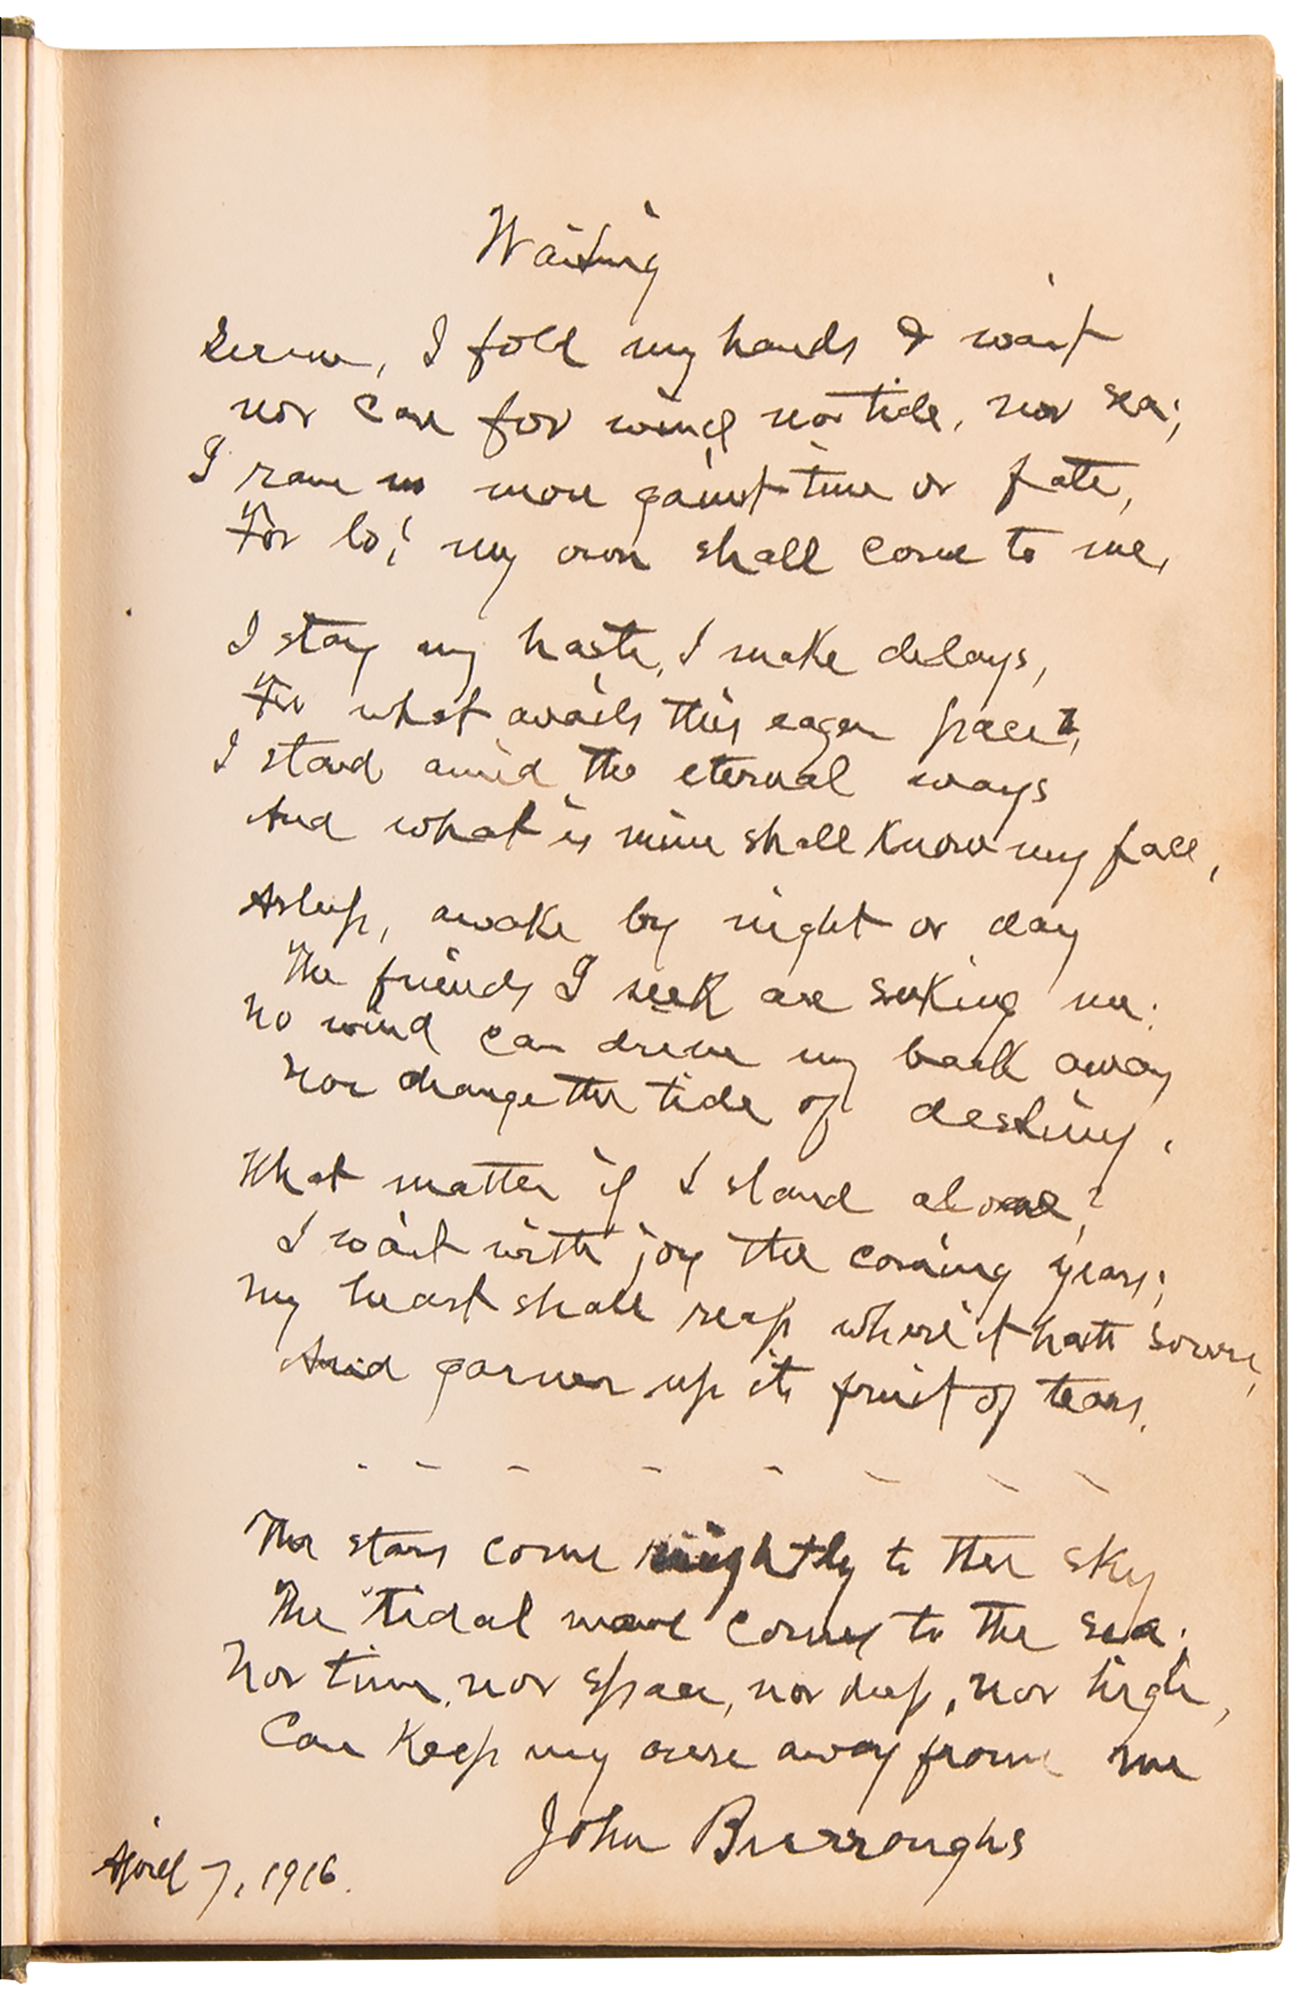 Waiting
Serene, I fold my hands & wait
nor care for wind nor tide, nor sea;
I rave no more gainst time or fate,
For lo! my own shall come to me.
I stay my haste, I make delays,
For what avails this eager pace?
I stand amid the eternal ways
And what is mine shall know my face,
Asleep, awake by night or day
The friends I seek are seeking me:
No wind can drive my bark away
Nor change the tide of destiny.
What matter if I stand alone?
I wait with joy the coming years;
My heart shall reap where it hath sown,
And garner up its fruit of tears.
- - - - - - - -
The stars come nightly to the sky
The tidal wave comes to the sea;
Nor time, nor space, nor deep, nor high,
Can keep my own away from me
John Burroughs
April 7, 1916.